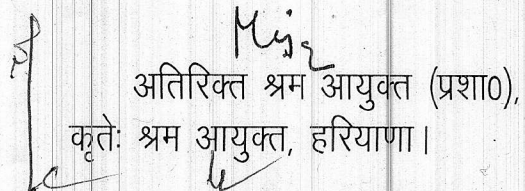 अतिरिक्त श्रम आयुक्त (प्रशा0),
कृतेः श्रम आयुक्त, हरियाणा।